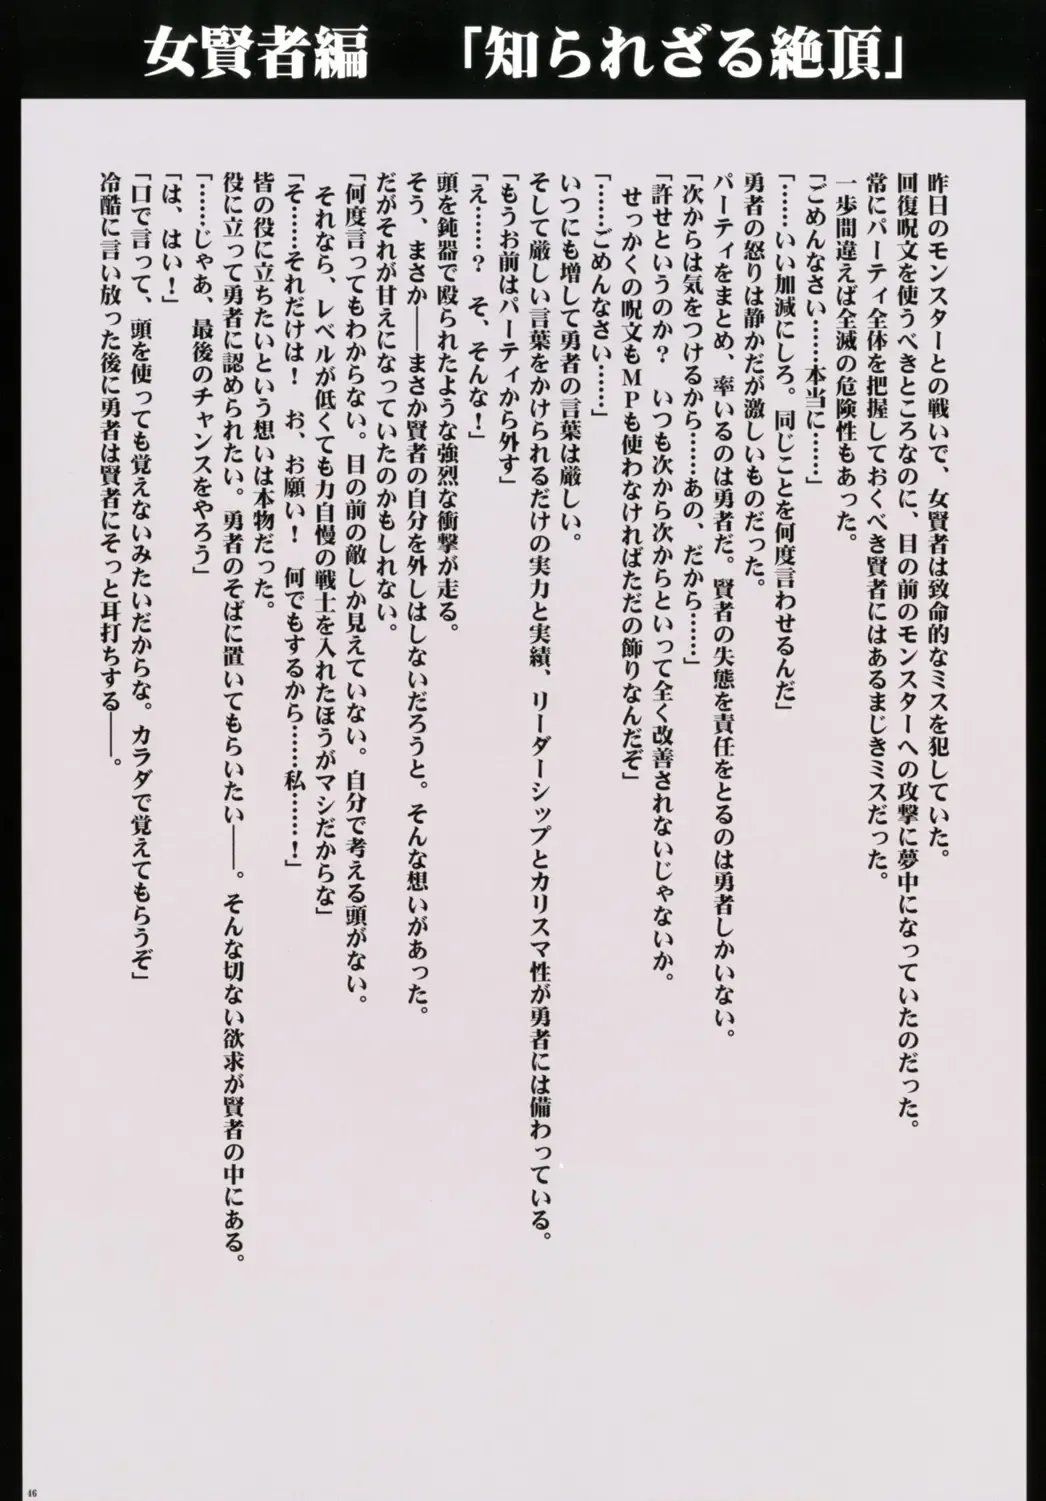 女賢者編　「知られざる絶頂」
昨日のモンスターとの戦いで、女賢者は致命的なミスを犯していた。
回復呪文を使うべきところなのに、目の前のモンスターへの攻撃に夢中になっていたのだった。
常にパーティ全体を把握しておくべき賢者にはあるまじきミスだった。
一歩間違えば全滅の危険性もあった。
「ごめんなさい……本当に……」
「……いい加減にしろ。同じことを何度言わせるんだ」
勇者の怒りは静かだが激しいものだった。
パーティをまとめ、率いるのは勇者だ。賢者の失態を責任をとるのは勇者しかいない。
「次からは気をつけるから……あの、だから……」
「許せというのか？　いつも次から次からといって全く改善されないじゃないか。
　せっかくの呪文もＭＰも使わなければただの飾りなんだぞ」
「……ごめんなさい……」
いつにも増して勇者の言葉は厳しい。
そして厳しい言葉をかけられるだけの実力と実績、リーダーシップとカリスマ性が勇者には備わっている。
「もうお前はパーティから外す」
「え……？　そ、そんな！」
頭を鈍器で殴られたような強烈な衝撃が走る。
そう、まさか――まさか賢者の自分を外しはしないだろうと。そんな想いがあった。
だがそれが甘えになっていたのかもしれない。
「何度言ってもわからない。目の前の敵しか見えていない。自分で考える頭がない。
　それなら、レベルが低くても力自慢の戦士を入れたほうがマシだからな」
「そ……それだけは！　お、お願い！　何でもするから……私……！」
皆の役に立ちたいという想いは本物だった。
役に立って勇者に認められたい。勇者のそばに置いてもらいたい――。そんな切ない欲求が賢者の中にある。
「……じゃあ、最後のチャンスをやろう」
「は、はい！」
「口で言って、頭を使っても覚えないみたいだからな。カラダで覚えてもらうぞ」
冷酷に言い放った後に勇者は賢者にそっと耳打ちする――。
46